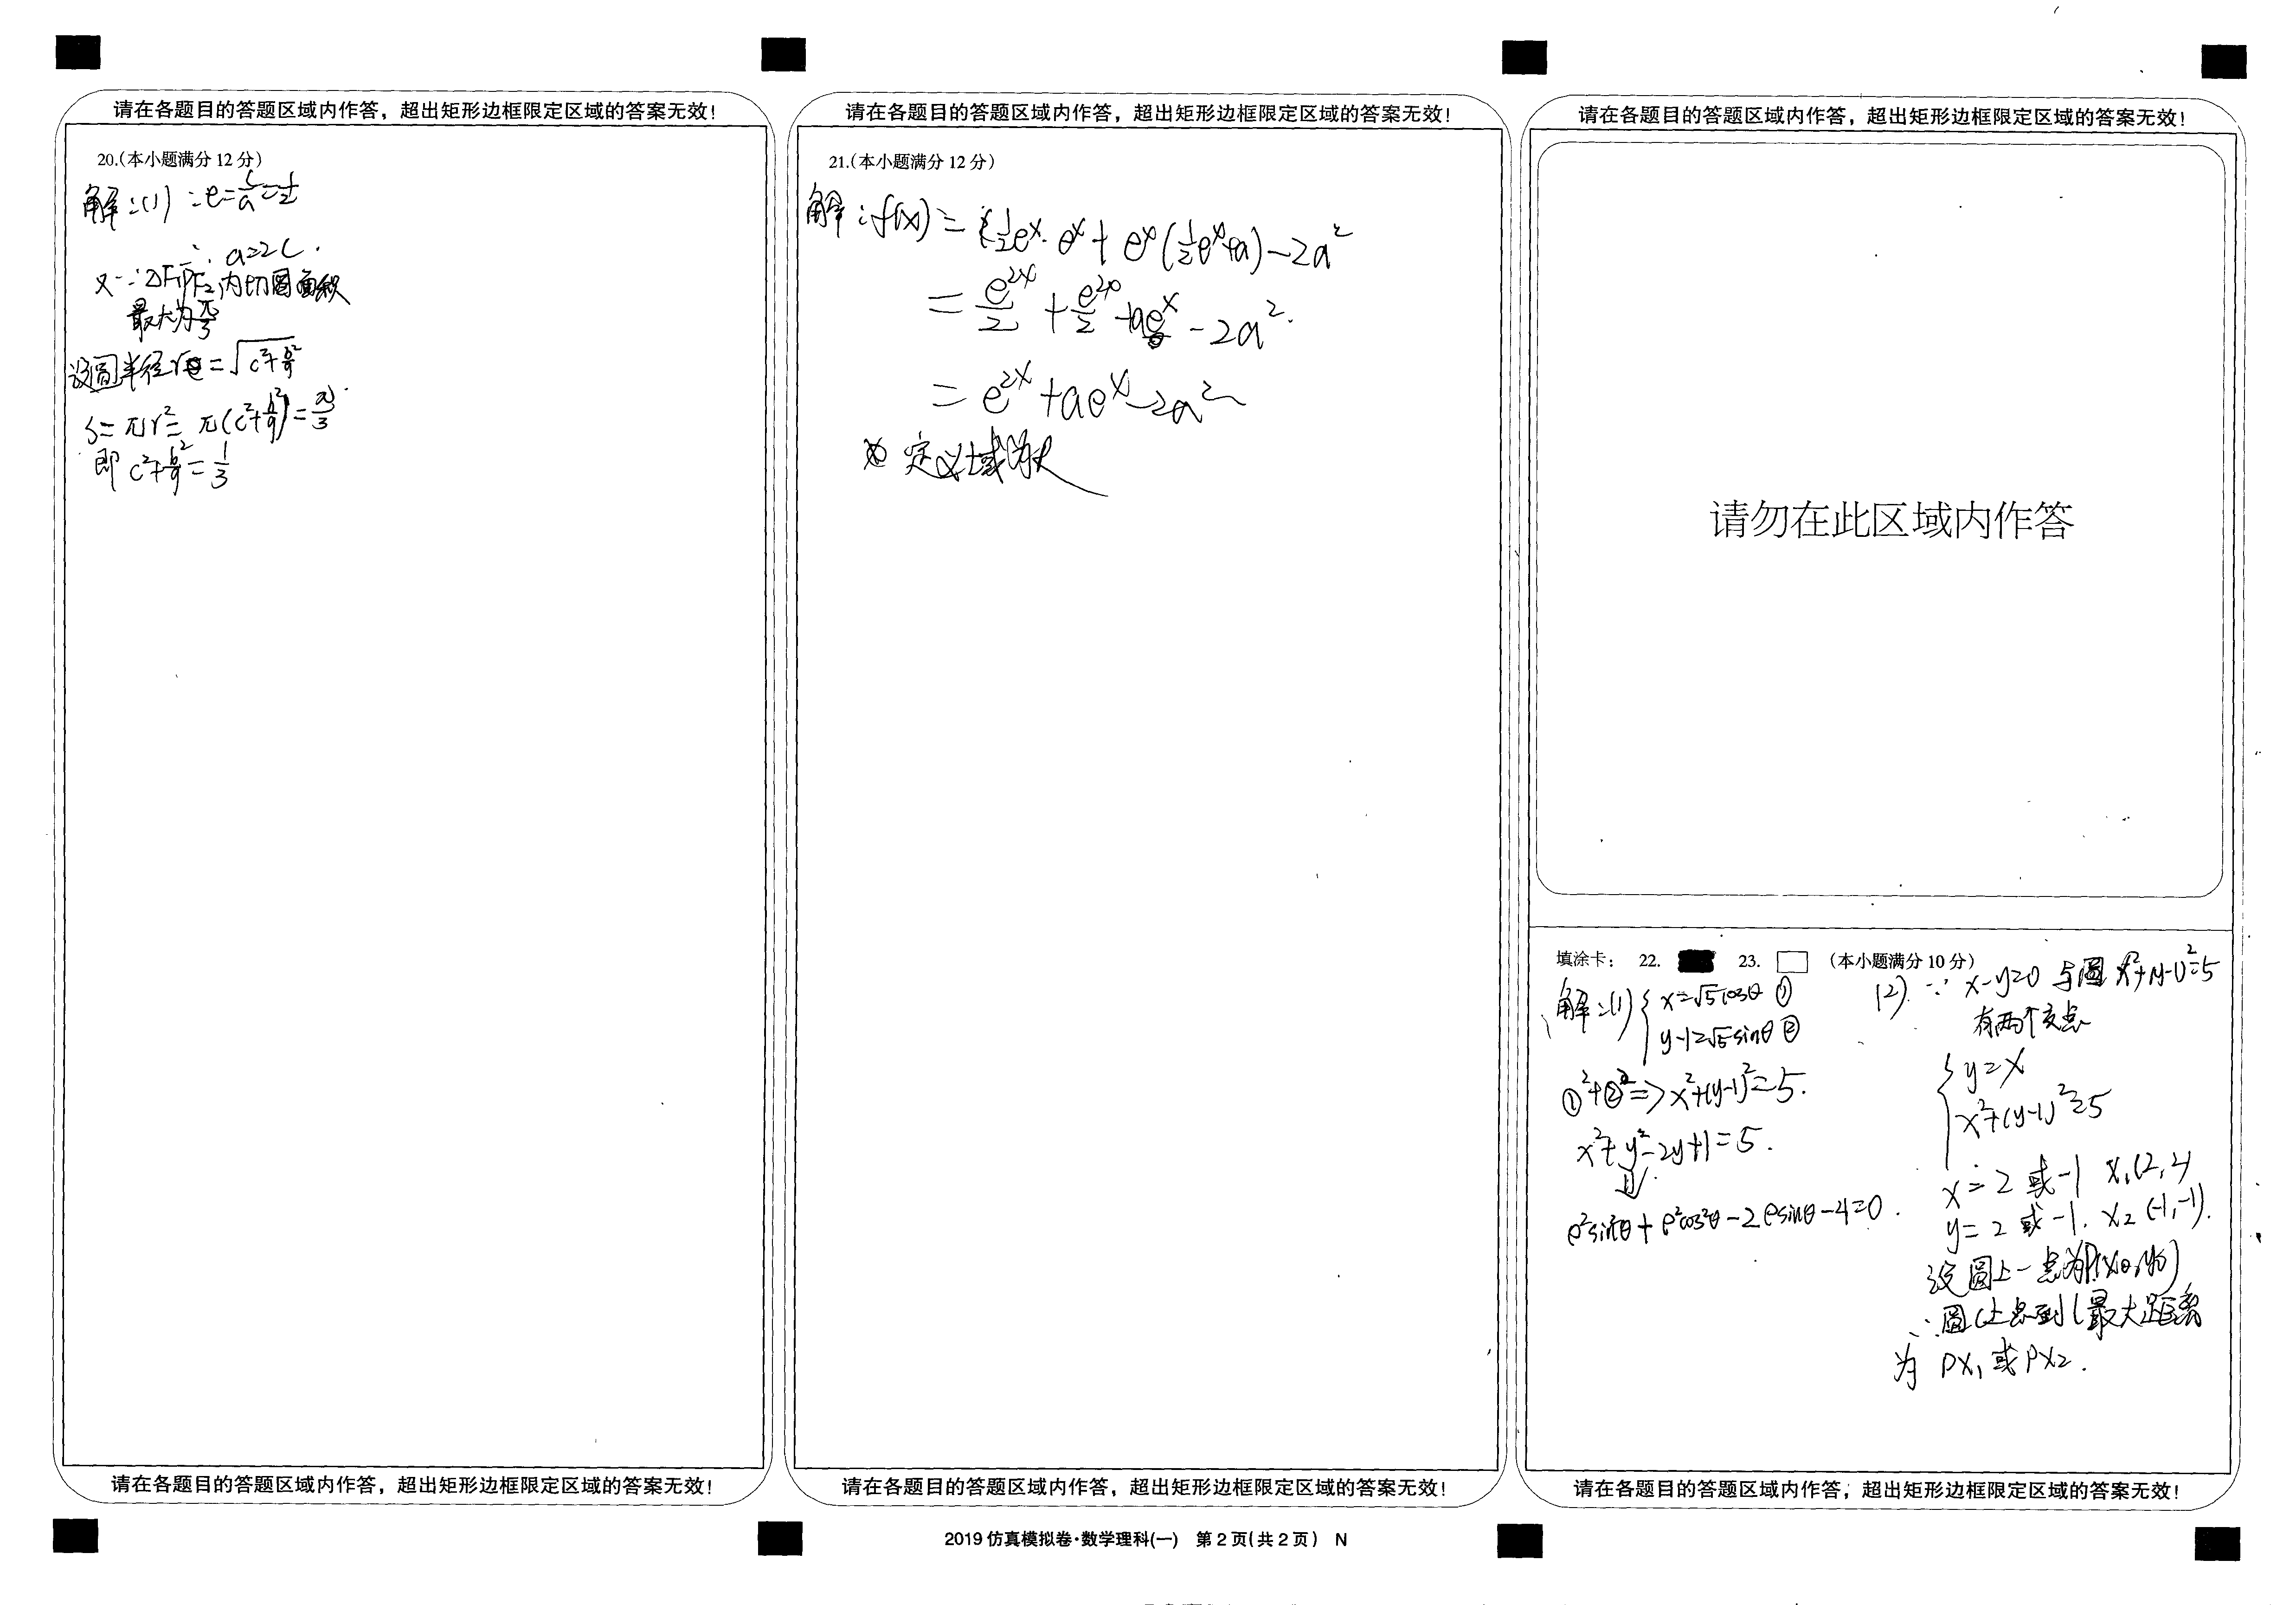 请在各题目的答题区域内作答，超出矩形边框限定区域的答案无效！
20.(本小题满分 12 分)
解:(1) ∵e=c/a=1/2
∴ a=2c.
又∵△F₁PF₂内切圆面积
最大为π/3
设圆半径r=√(c²+b²/9)
S=πr²=π(c²+b²/9)=π/3.
即 c²+b²/9=1/3
请在各题目的答题区域内作答，超出矩形边框限定区域的答案无效！
请在各题目的答题区域内作答，超出矩形边框限定区域的答案无效！
21.(本小题满分 12 分)
解:f(x)=½eˣ·eˣ+eˣ(½eˣ+a)-2a²
=e²ˣ/2+e²ˣ/2+aeˣ-2a².
=e²ˣ+aeˣ-2a²
定义域为R
请在各题目的答题区域内作答，超出矩形边框限定区域的答案无效！
2019 仿真模拟卷·数学理科(一) 第 2 页(共 2 页) N
请在各题目的答题区域内作答，超出矩形边框限定区域的答案无效！
请勿在此区域内作答
填涂卡： 22. 23. (本小题满分 10 分)
解:(1){x=√5cosθ ①
y-1=√5sinθ ②
①²+②²⇒x²+(y-1)²=5.
x²+y²-2y+1=5.
⇓
ρ²sin²θ+ρ²cos²θ-2ρsinθ-4=0.
(2). ∵ x-y=0 与圆 x²+(y-1)²=5
有两个交点
{y=x
x²+(y-1)²=5
x=2 或-1 x₁(2,2)
y=2 或-1. x₂(-1,-1).
设圆上一点为P(x₀,y₀)
∴圆C上点到l最大距离
为 PX₁或PX₂.
请在各题目的答题区域内作答；超出矩形边框限定区域的答案无效！